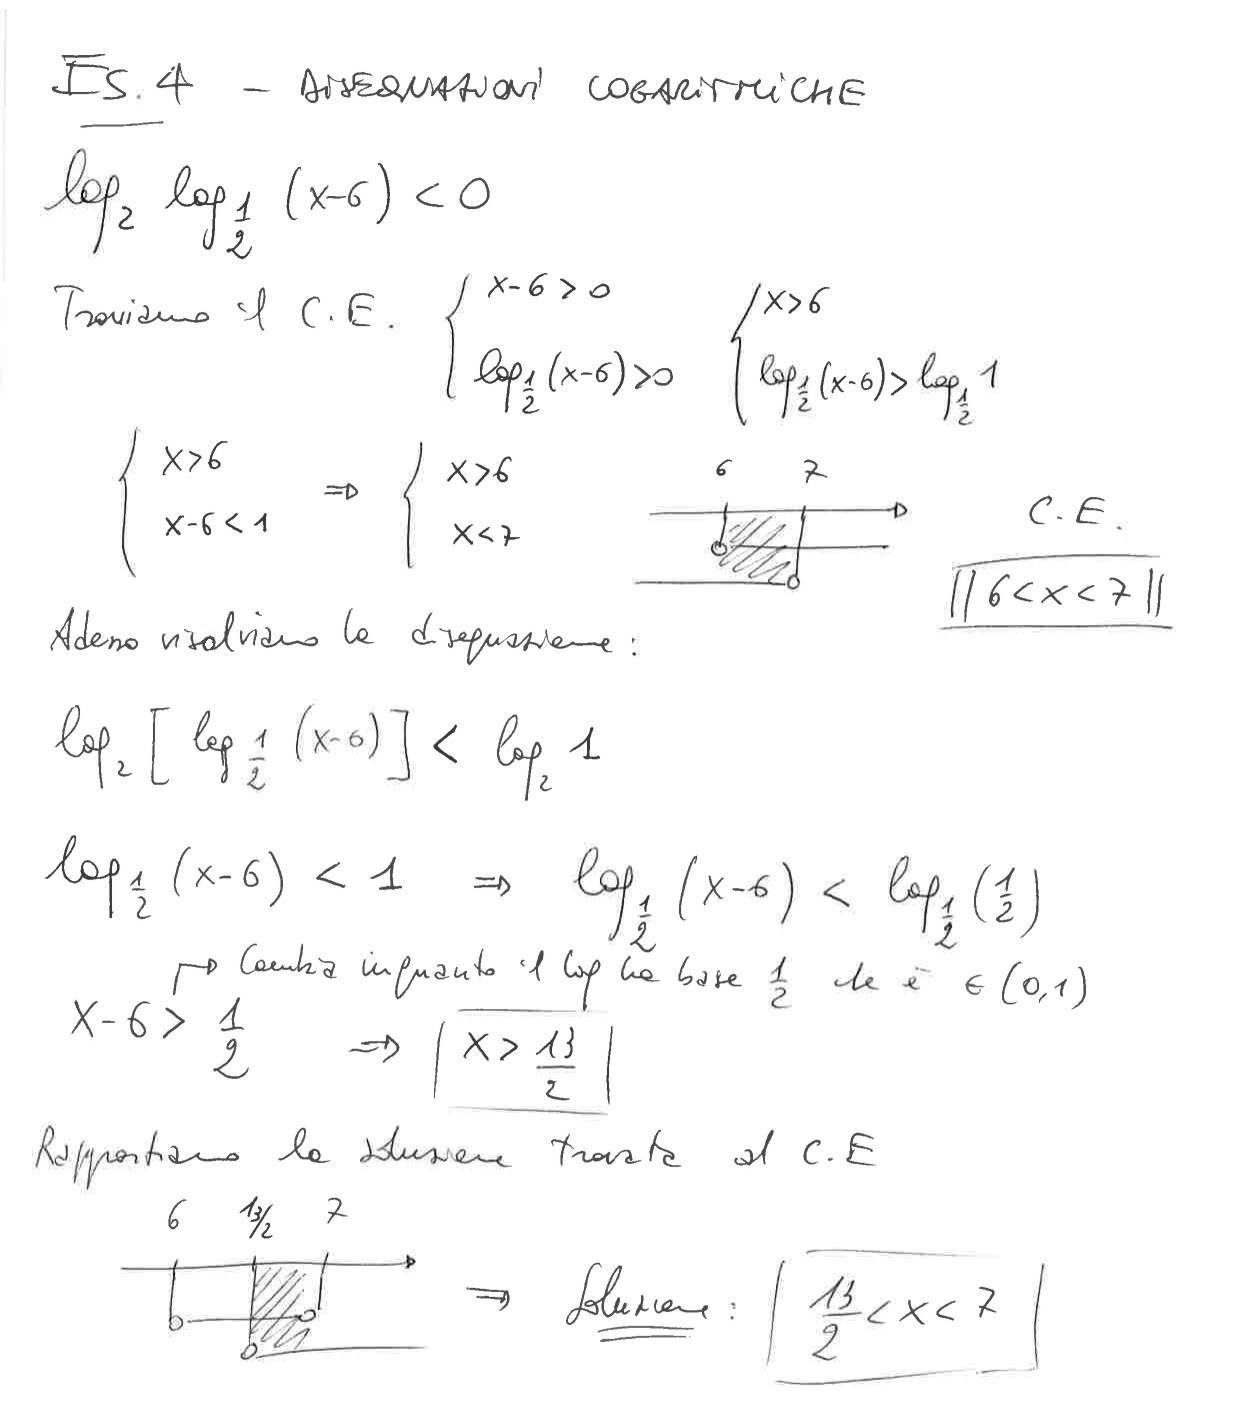 Es. 4 - DISEQUAZIONI LOGARITMICHE
log₂ log_{1/2} (x-6) < 0
Troviamo il C.E. { x-6 > 0 ; log_{1/2} (x-6) > 0 { x > 6 ; log_{1/2} (x-6) > log_{1/2} 1
{ x > 6 ; x-6 < 1 ⇒ { x > 6 ; x < 7
6 7
C.E.
|| 6 < x < 7 ||
Adesso risolviamo la disequazione:
log₂ [ log_{1/2} (x-6) ] < log₂ 1
log_{1/2} (x-6) < 1 ⇒ log_{1/2} (x-6) < log_{1/2} (1/2)
→ Cambia in quanto il log ha base 1/2 che è ∈ (0,1)
x-6 > 1/2 ⇒ x > 13/2
Rapportiamo la soluzione trovata al C.E
6 13/2 7
⇒ Soluzione: 13/2 < x < 7